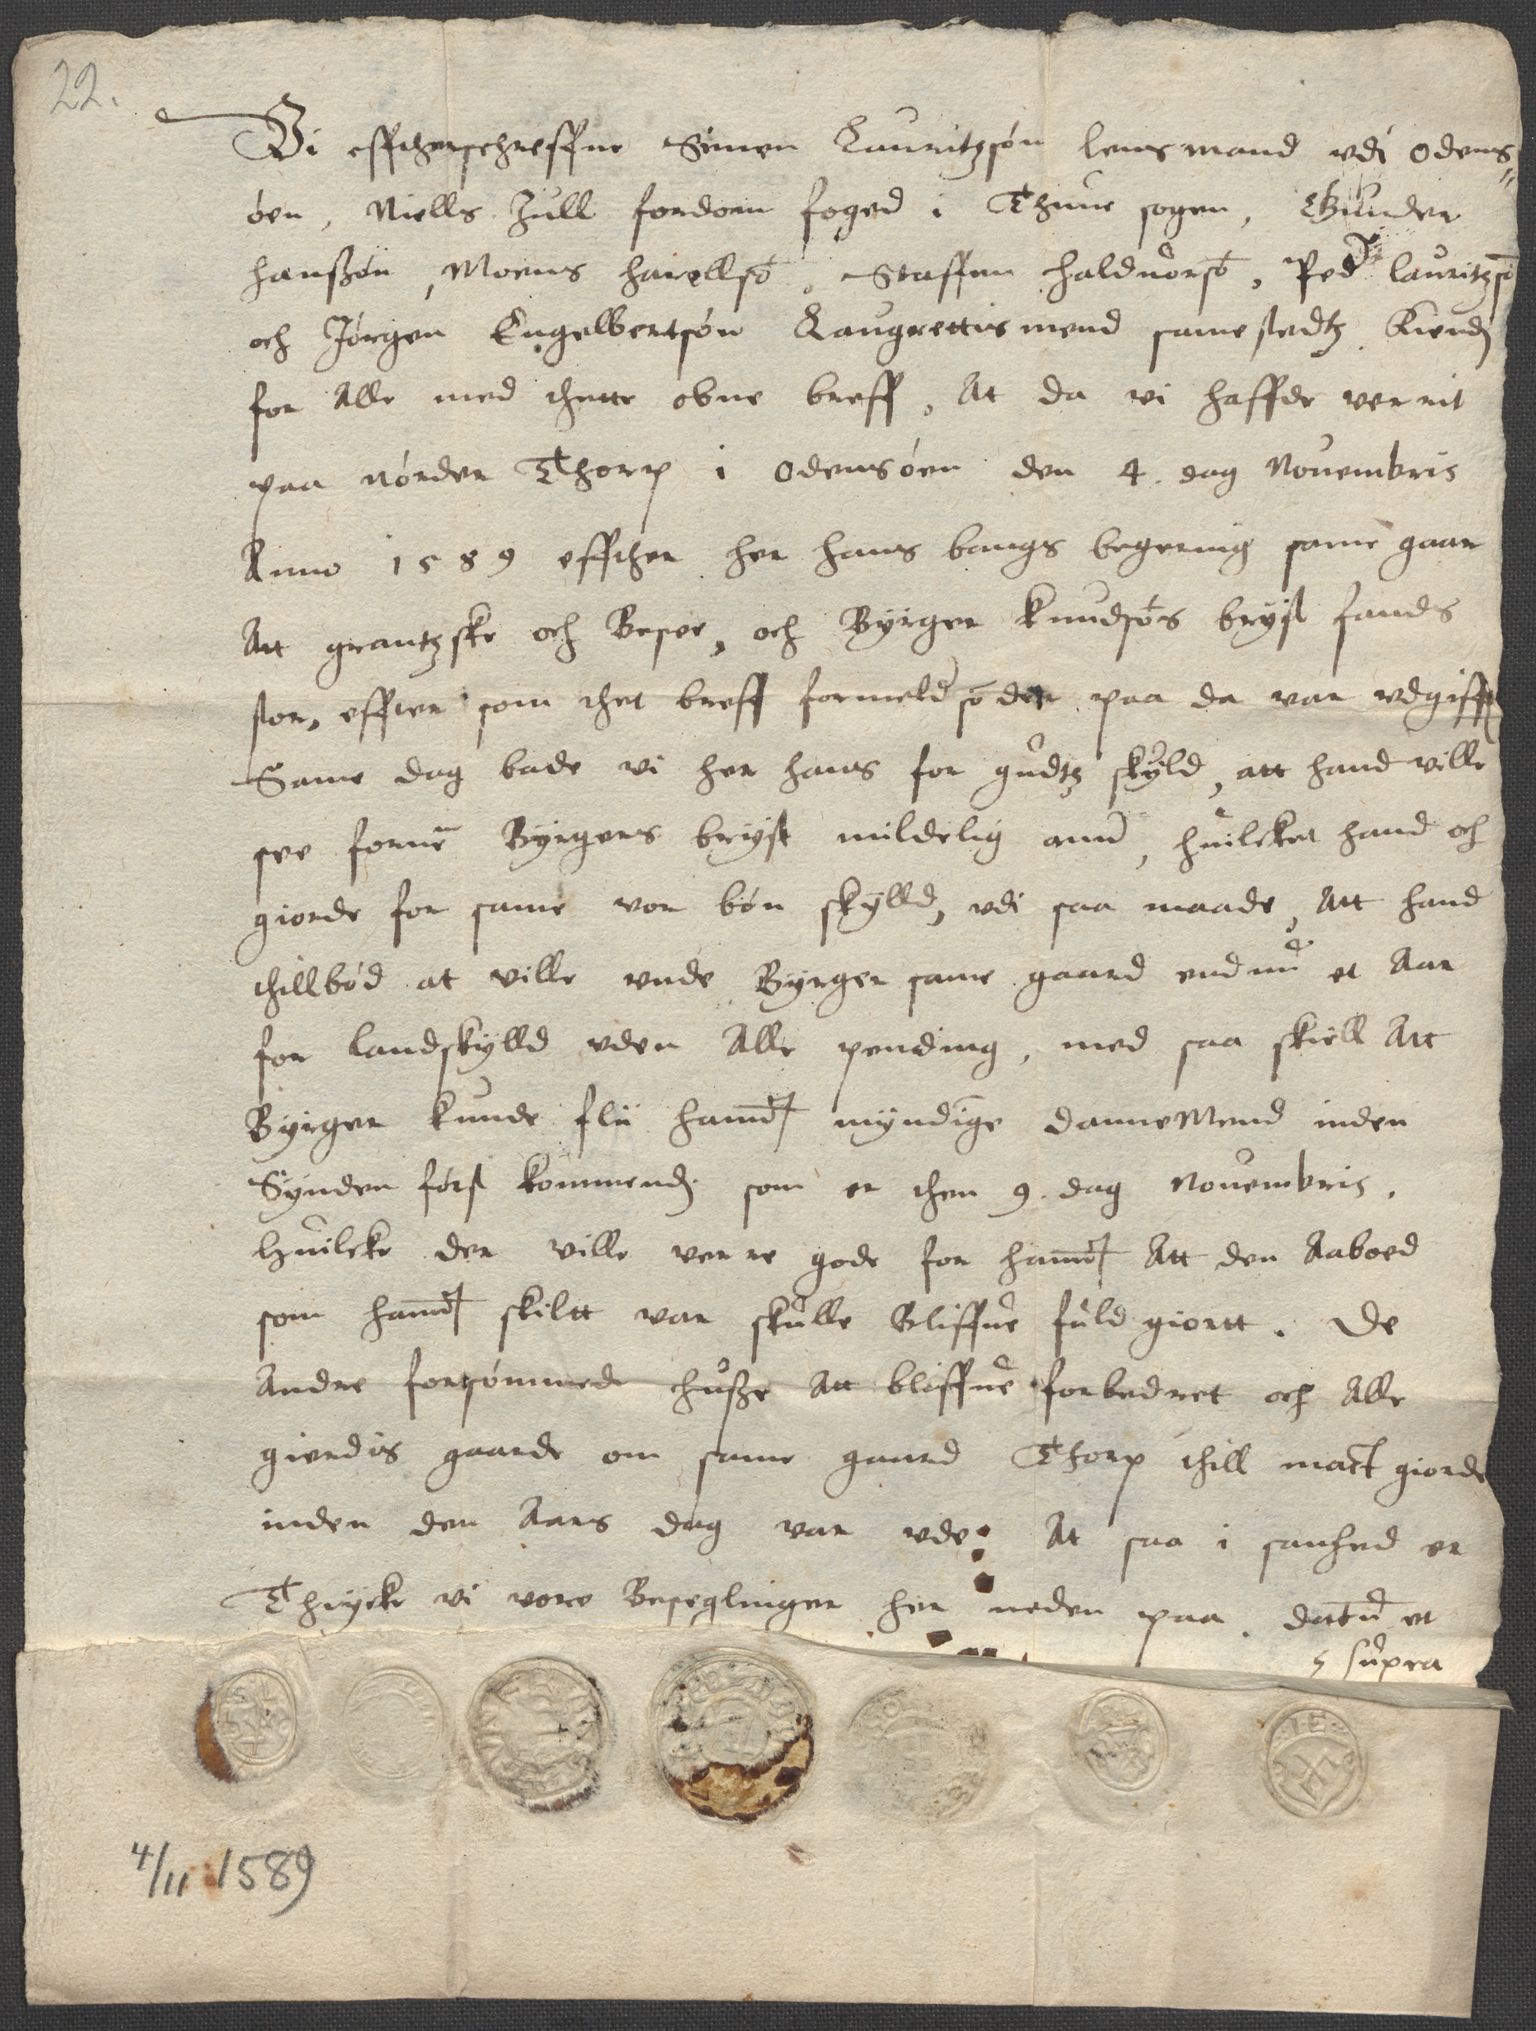 22.
Vi effthersschreffne Simen Lauritzsøn lensmand vdi Odens=
øen, Niells Jull fordom foged i Thune sogen, Gunder
hanssøn, Moens harellsø, Staffen haldvorsø, Ped lauritzsø
och Jørgen Engelbertsøn Laugrettis mend samestedtz Kiendis
for Alle med thette obne breff, At da vi haffde verrit
paa nørder Thorp i Odensøen den 4. dag Nouembris
Anno 1589 effther her hans bangs begering same gaar
Att grantzske och Besee, och Byrger Knudsøs bryst fands
stor, effter som thet breff formeld so der paa da var vdgifft
Same dag bade vi her hans for gudtz skyld, att hand ville
see forne Byrgers bryst mildelig ann, huilcket hand och
giorde for same vor bøn skylld, vdi saa maade, Att hand
thillbød at ville vnde Byrger same gaard end nu et Aar
for landskylld vden Alle pending, med saa skiell Att
Byrger kunde flii hannd myndige danneMend inden
Synden først kommendis som er then 9. dag Nouembris.
Huilcke der ville verre gode for hannd Att den Aaboed
som hannd skiltt var skulle Bliffue fuld giortt. De
Andre forsømmede husse Att bliffue forbedret och Alle
gierdis gaarde om same gaard Thorp thill mact giorde
inden den Aars dag var vde. At saa i sanhed er
Thrycke vi vore Beseglinger her neden paa. datu et
supra
4/11 1589